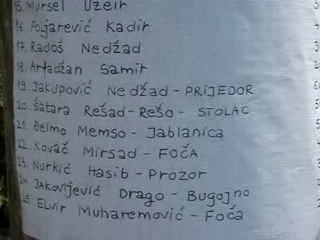 15. Mursel Uzeir
16. Poljarević Kadir
17. Radoš Nedžad
18. Artadžan Samir
19. Jakupović Nedžad - PRIJEDOR
20. Šatara Rešad-Rešo - STOLAC
21. Đelmo Memso - Jablanica
22. Kovač Mirsad - FOČA
23. Nurkić Hasib - Prozor
24. Jakovljević Drago - Bugojno
25. Elvir Muharemović - Foča